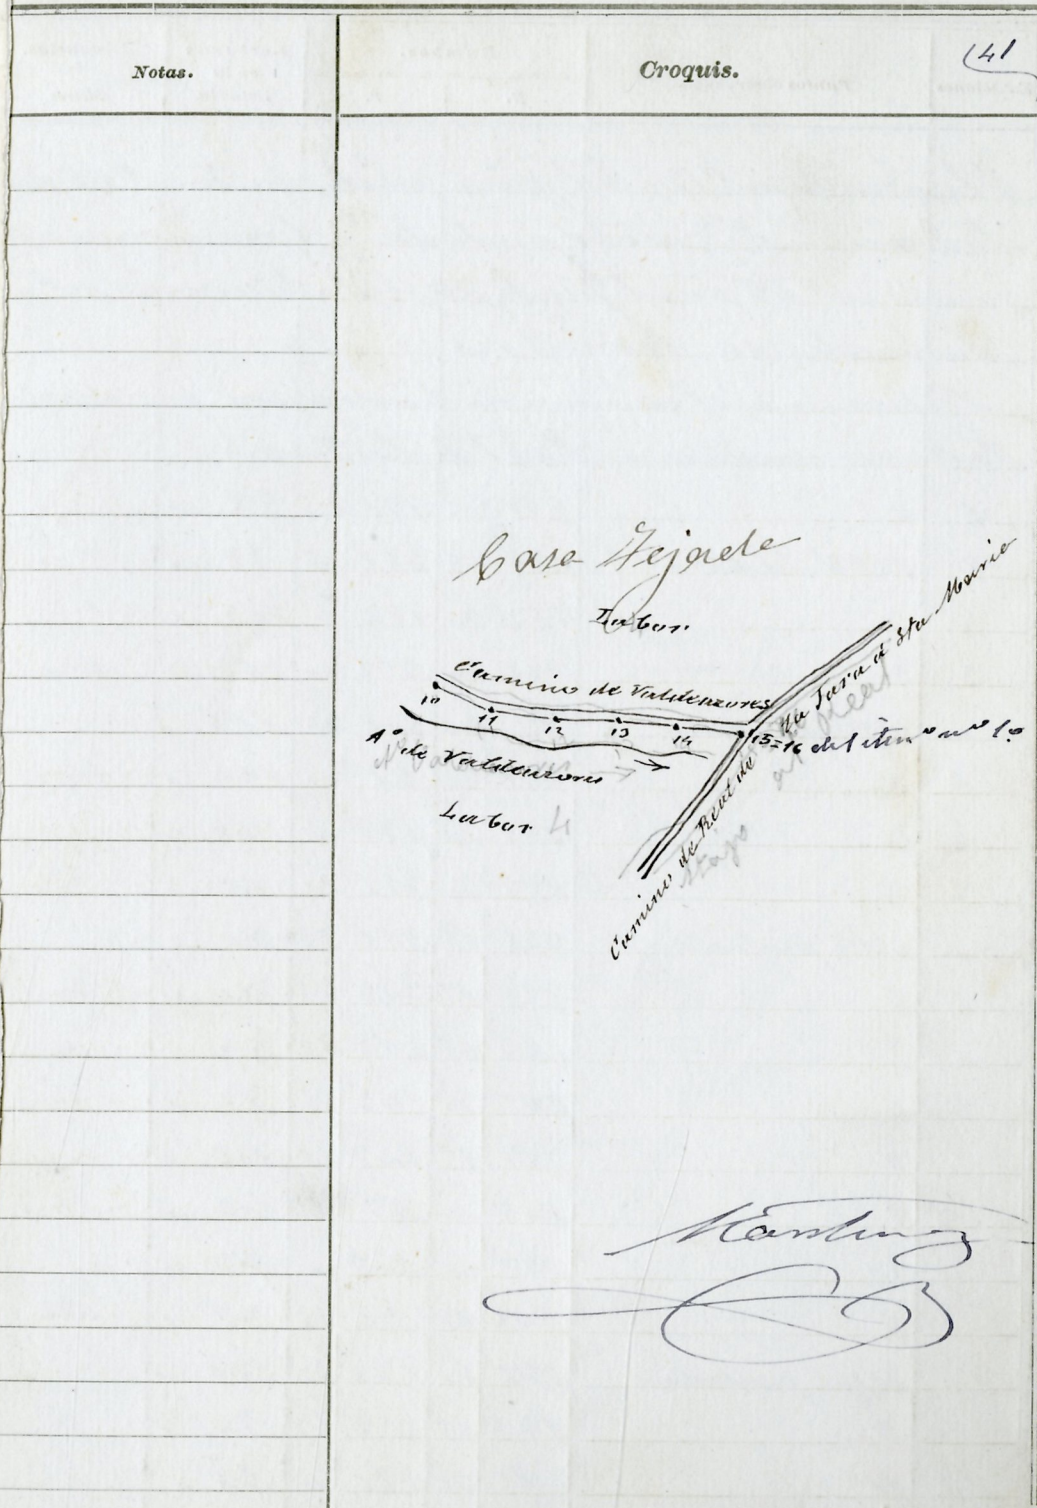 Notas.
Croquis.
41
Casa Tejada
Labor
Camino de Valdeazores
10
11
12
13
14
15=16 del itin.º nº 1.º
Aº de Valdeazores
Labor
Camino de Real de la Jara á Sta Maria
Martinez